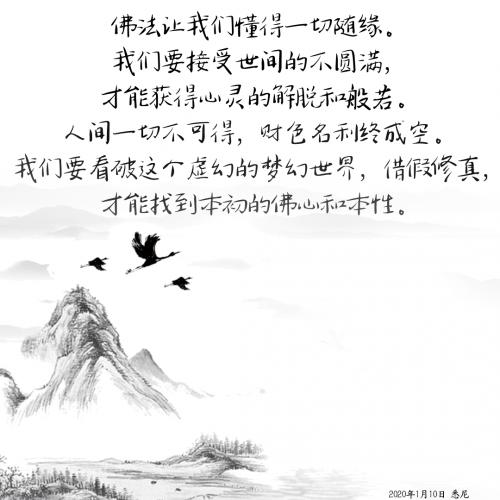 佛法让我们懂得一切随缘。
我们要接受世间的不圆满，
才能获得心灵的解脱和般若。
人间一切不可得，财色名利终成空。
我们要看破这个虚幻的梦幻世界，借假修真，
才能找到本初的佛心和本性。
2020年1月10日 悉尼